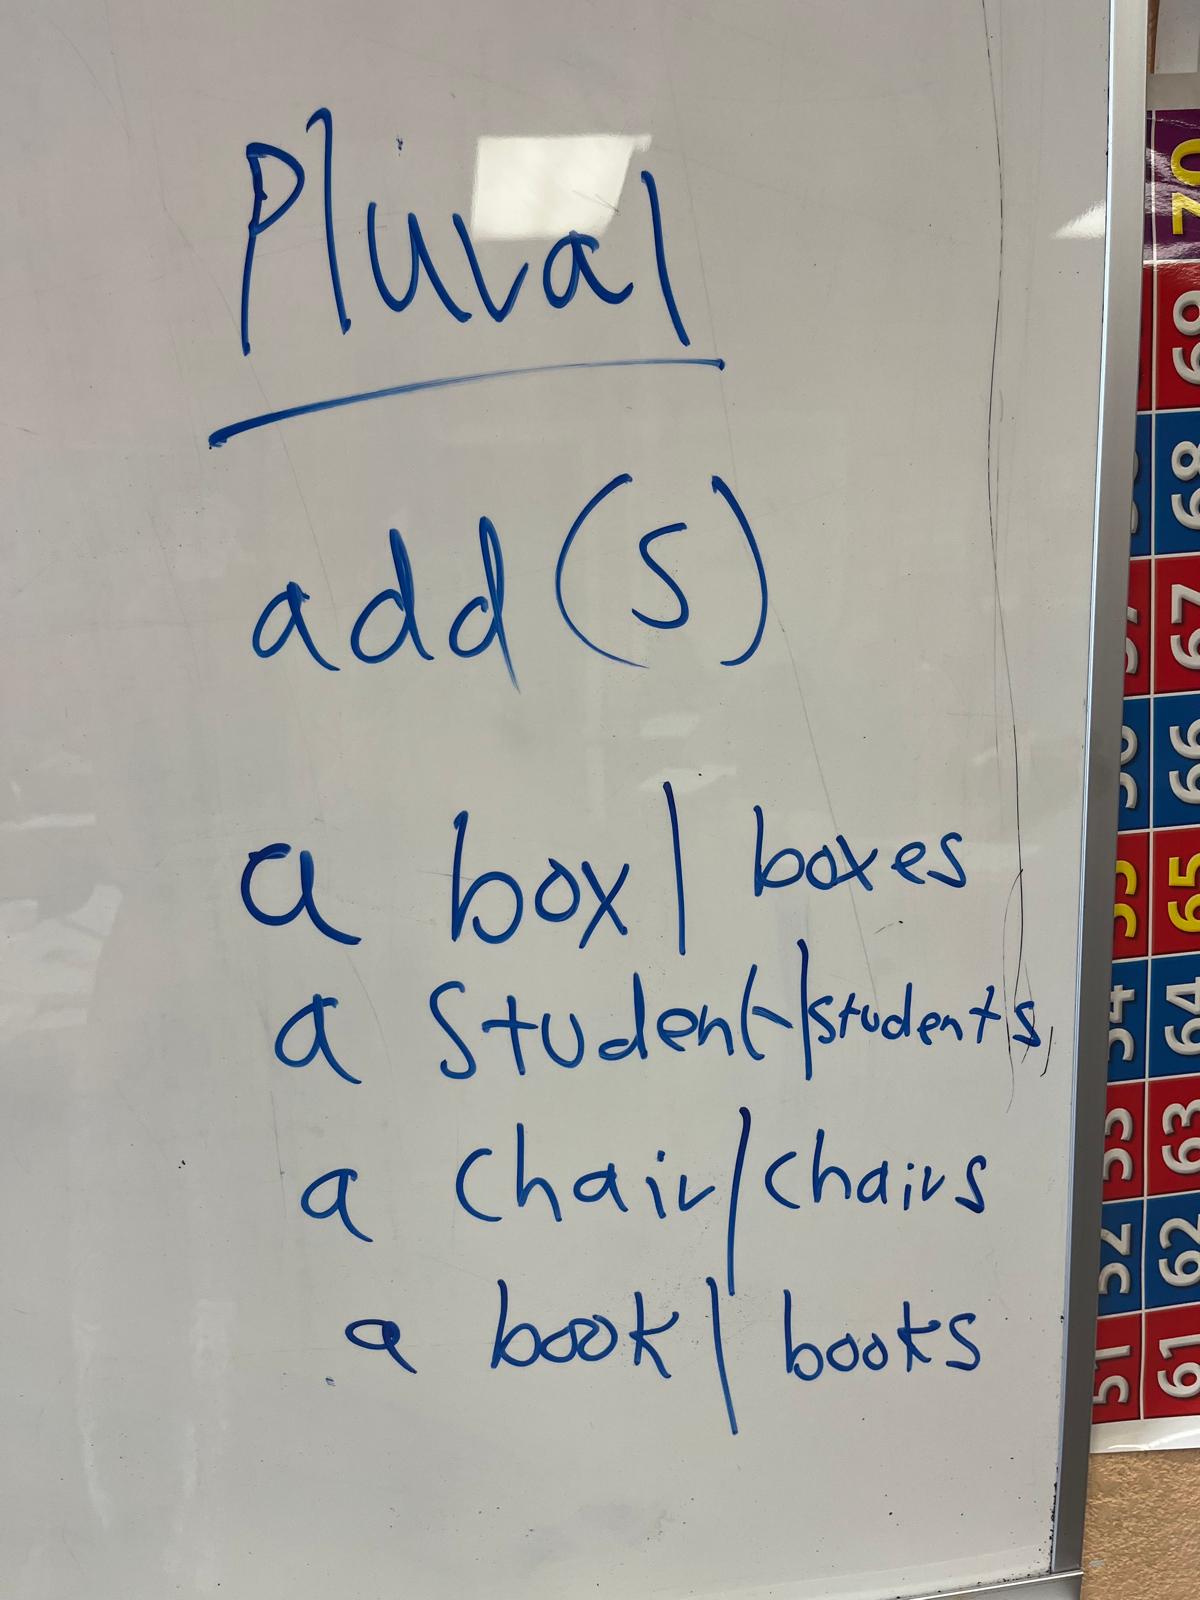 Plural
add (s)
a box | boxes
a student / students
a chair / chairs
a book | books
70
69
68
67
66
65
64
63
62
61
55
54
53
52
51